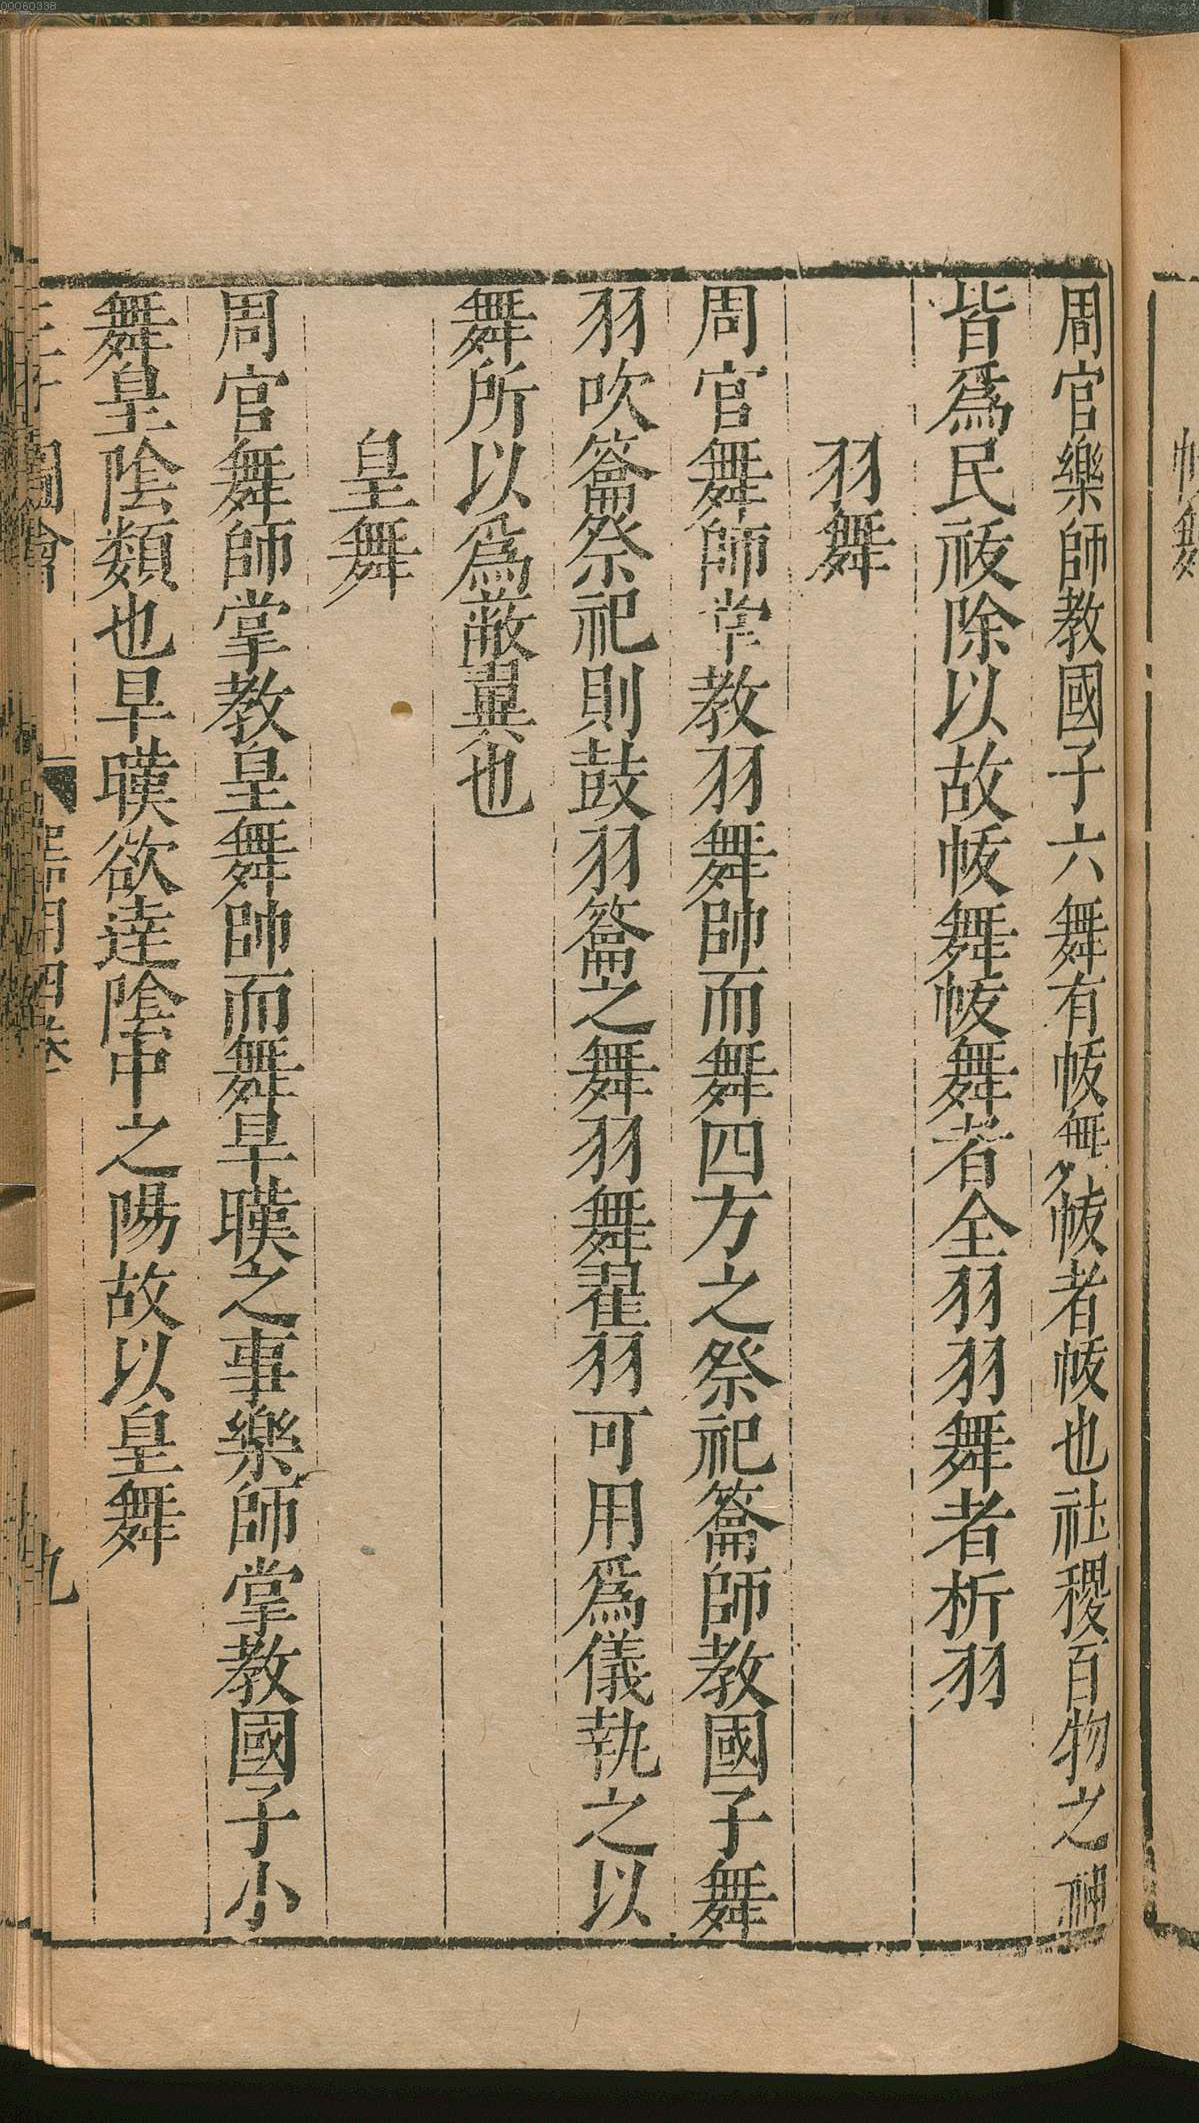 周官樂師教國子六舞有帗舞帗者帗也社稷百物之神
皆爲民祓除以故帗舞帗舞者全羽羽舞者析羽
羽舞
周官舞師掌教羽舞帥而舞四方之祭祀籥師教國子舞
羽吹籥祭祀則鼓羽籥之舞羽舞翟羽可用爲儀執之以
舞所以爲蔽翼也
皇舞
周官舞師掌教皇舞帥而舞旱暵之事樂師掌教國子小
舞皇陰類也旱暵欲達陰中之陽故以皇舞
圖會 器用四卷 九
帗舞
00060338